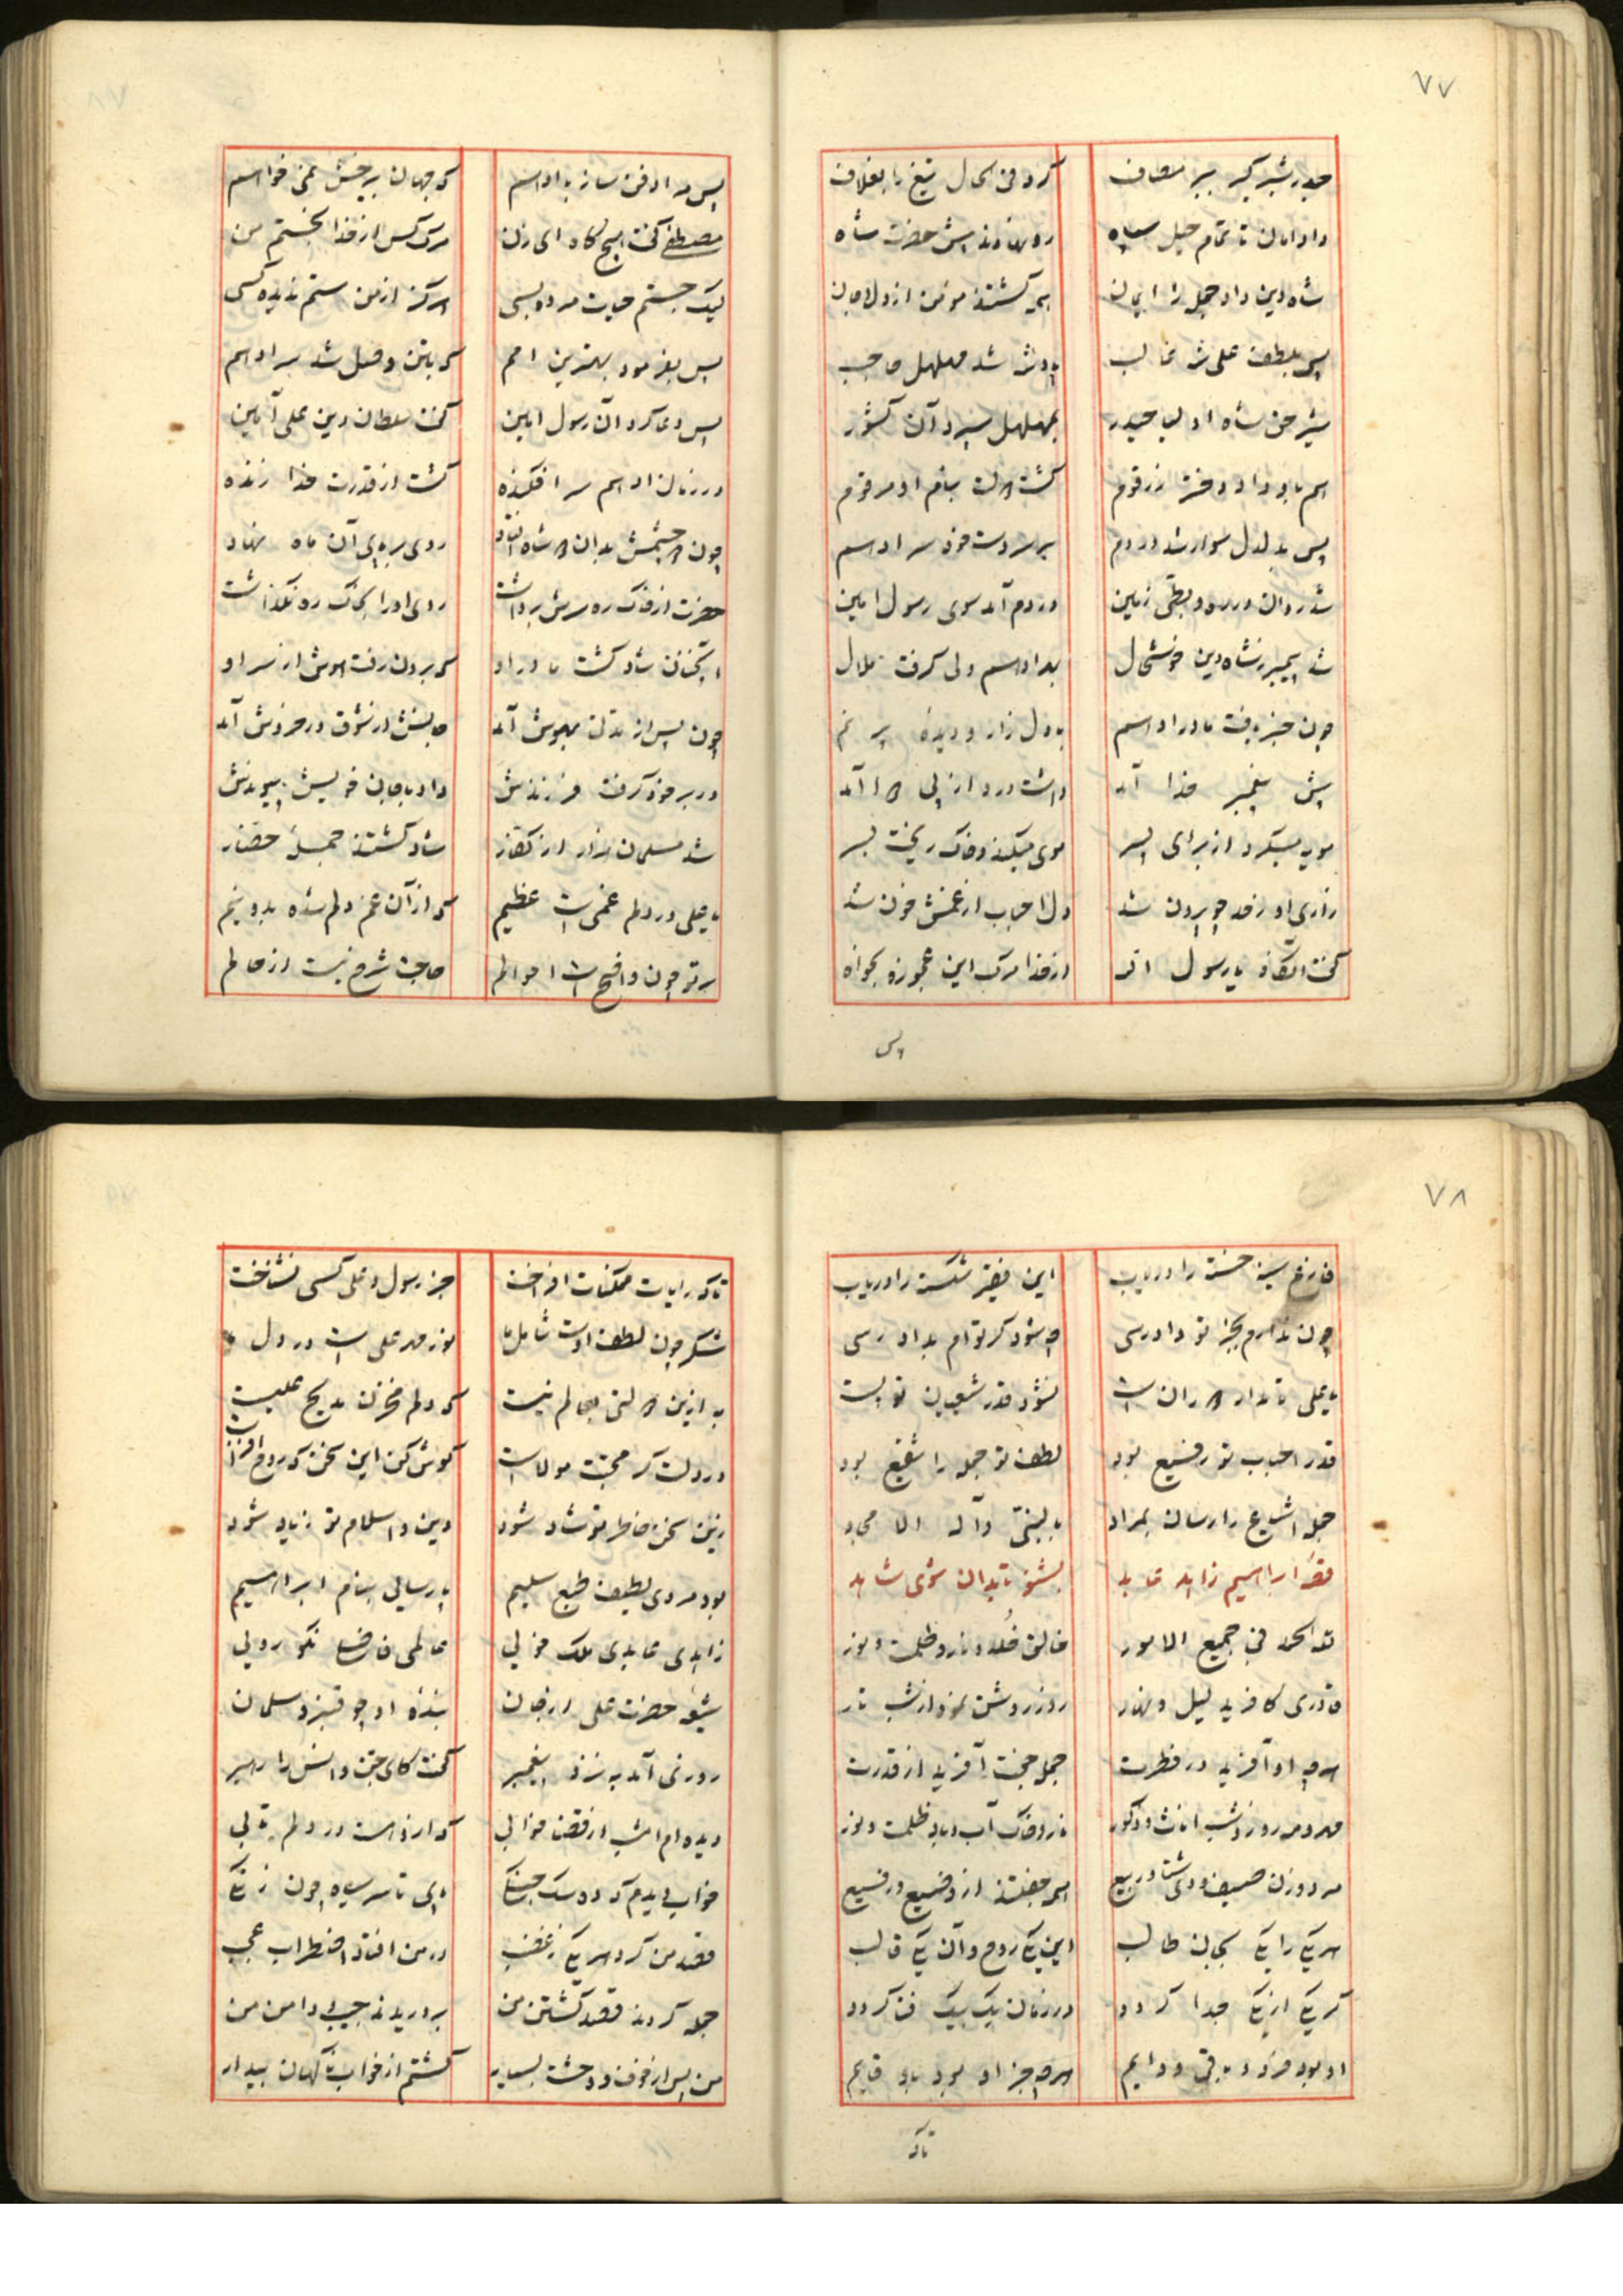 ۷۷
حیدر شیر گیر ببر مصاف کرد فی الحال تیغ را بغلاف
داد امان تا تمام خیل سپاه رو نهادند پیش حضرت شاه
شاه دین داد جمله را ایمان همه گشتند مؤمن از دل و جان
پس بلطف علی عالی شد مهلهل صاحب
شیر حق شاه اولیا حیدر بمهلهل سپرد آن کشور
هم باو داد دختر زرقوم گشت دولت بنام او مرقوم
پس بدلدل سوار شد در دم بر سر دست خود سر ادهم
شد روان در ره بطحی زمین در دم آمد سوی رسول امین
شد پیمبر ز شاه دین خوشحال بهر ادهم ولی گرفت ملال
چون خبر یافت مادر ادهم با دل زار و دیده پر نم
پیش پیغمبر خدا آمد داشت دردی از پی دوا آمد
مویه میکرد از برای پسر موی میکند و خاک ریخت بسر
زاری او ز حد چو بیرون شد دل احباب از غمش خون شد
گفت آنگاه یا رسول الله از خدا مرگ این عجوزه بخواه
پس
پس مرا دفن ساز با ادهم که جهان بیرخش نمی خواهم
مصطفی گفت هیچگاه ای زن مرگ کس از خدا نجستم من
لیک جستم حیات مرده بسی هرگز از من ستم ندیده کسی
پس بفرمود بهترین امم که باتن وصل شد سر ادهم
پس دعا کرد آن رسول امین گفت سلطان دین علی آمین
در زمان ادهم سر افکنده گشت از قدرت خدا زنده
چون دو چشمش بدان دو شاه افتاد روی بر پای آن دو ماه نهاد
حضرت از خاک ره سرش برداشت روی او را بخاک ره نگذاشت
آنچنان شاد گشت مادر او که برون رفت هوش از سر او
چون پس از مدتی بهوش آمد جانش از شوق در خروش آمد
در بر خود گرفت فرزندش داد با جان خویش پیوندش
شد مسلمان هزار از کفار شاد گشتند جمله حضار
یا علی در دلم غمی است عظیم که از آن غم دلم شده بدو نیم
بر تو چون واضح است احوالم حاجت شرح نیست از حالم
۷۸
فارغ سینه خسته را دریاب این فقیر شکسته را دریاب
چون ندارم بجز تو دادرسی چه شود گر توام بداد رسی
یا علی تا مدار دوران است نشود قدر شیعیان تو پست
قدر احباب تو رفیع بود لطف تو جمله را شفیع بود
جمله اشیاع را رسان بمراد بالنبی وآله الامجاد
قصه ابراهیم زاهد عابد بشنو تا بدان شوی شاهد
لله الحمد فی جمیع الامور خالق خلد و نار و ظلمت و نور
قادری کافرید لیل و نهار روز روشن نمود از شب تار
هر چه او آفرید در فطرت جمله جفت آفرید از قدرت
مهر و مه روز و شب اناث و ذکور نار و خاک آب و باد ظلمت و نور
مرد و زن صیف و دی شتا و ربیع همه جفتند از وضیع و رفیع
هر یکی را یکی بجان طالب این یکی روح و آن یکی قالب
گر یکی از یکی جدا گردد در زمان یک بیک فنا گردد
او بود فرد و باقی و دایم هر چه جز او بود باو قایم
تا که
تا که رایات ممکنات افراخت جز رسول و علی کسی نشناخت
شکر چون لطف اوست شامل ما نور مهر علی است در دل ما
به ازین دولتی بعالم نیست که دلم مخزن مدیح علیست
در دلت گر محبت مولاست گوش کن این سخن که روح افزاست
زین سخن خاطر تو شاد شود دین و اسلام تو زیاد شود
بود مردی لطیف طبع سلیم پارسائی بنام ابراهیم
زاهدی عابدی ملک خوئی عالمی فاضلی نکو روئی
شیعه حضرت علی از جان بنده او چو قنبر و سلمان
روزی آمد به نزد پیغمبر گفت کای جن و انس را رهبر
دیده ام امشب از قضا خوابی که از آنست در دلم تابی
خواب دیدم که ده سگ جنگی پای تا سر سیاه چون زنگی
قصد من کرد هر یکی ز غضب در من افتاد اضطراب عجب
جمله کردند قصد کشتن من بر دریدند جیب و دامن من
من پس از خوف و وحشت بسیار گشتم از خواب ناگهان بیدار